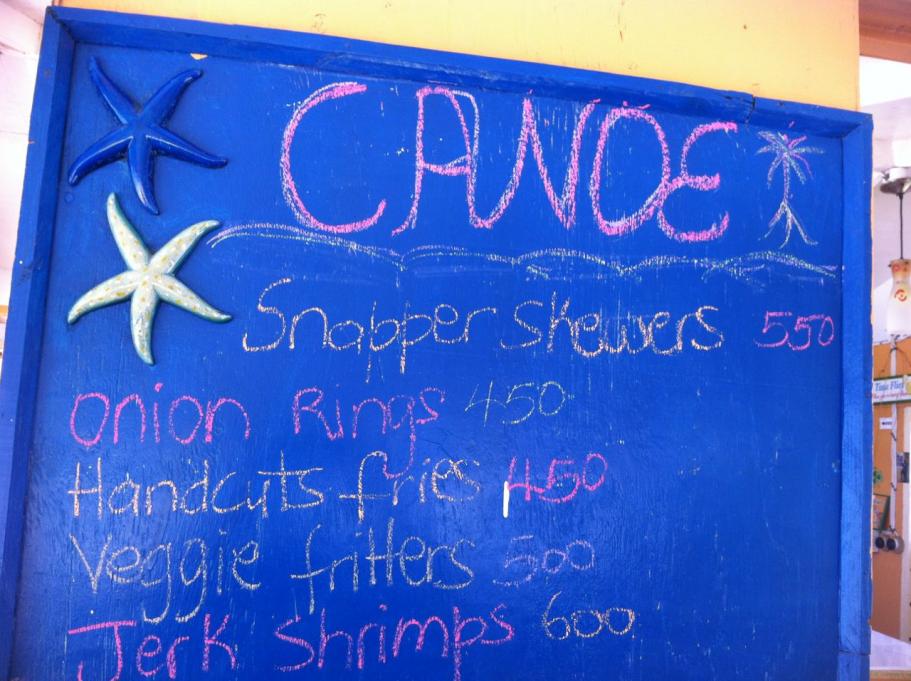 CANOE
Snapper Skewers 550
Onion Rings 450
Handcuts fries 450
Veggie fritters 500
Jerk Shrimps 600